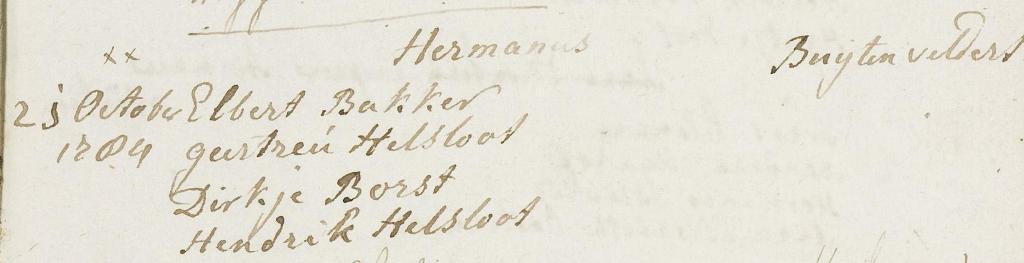 xx Hermanus Buytenveldert
23 October Elbert Bakker
1784 geertreu Helsloot
Dirkje Borst
Hendrik Helsloot